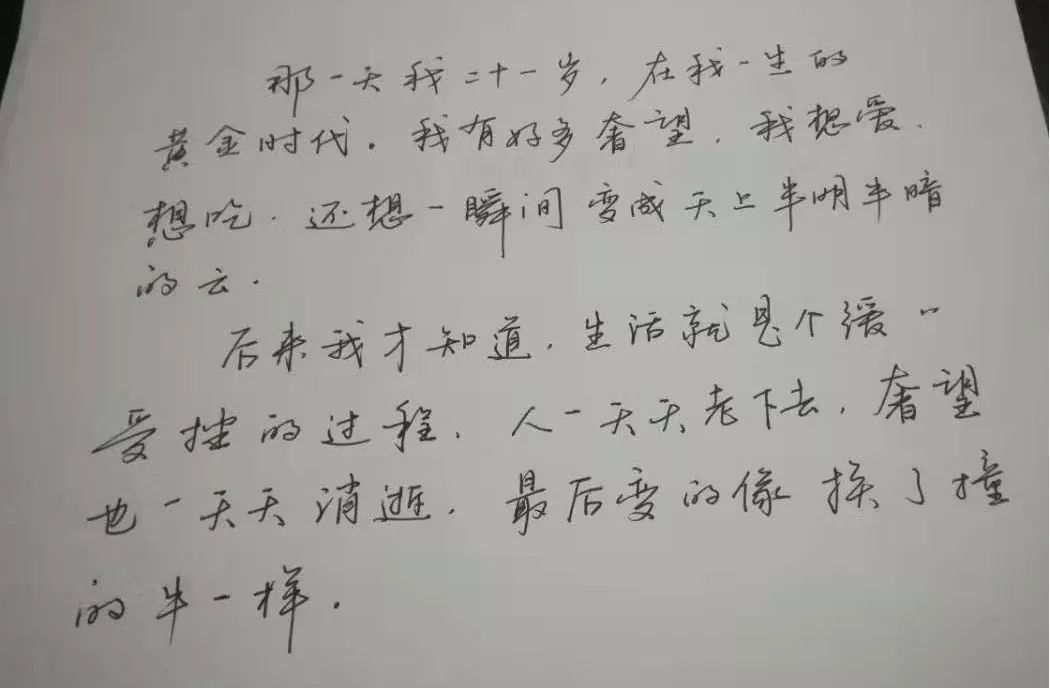 那一天我二十一岁，在我一生的
黄金时代。我有好多奢望，我想爱，
想吃，还想一瞬间变成天上半明半暗
的云.
后来我才知道，生活就是个缓〃
受挫的过程，人一天天老下去，奢望
也一天天消逝，最后变的像挨了撞
的牛一样.